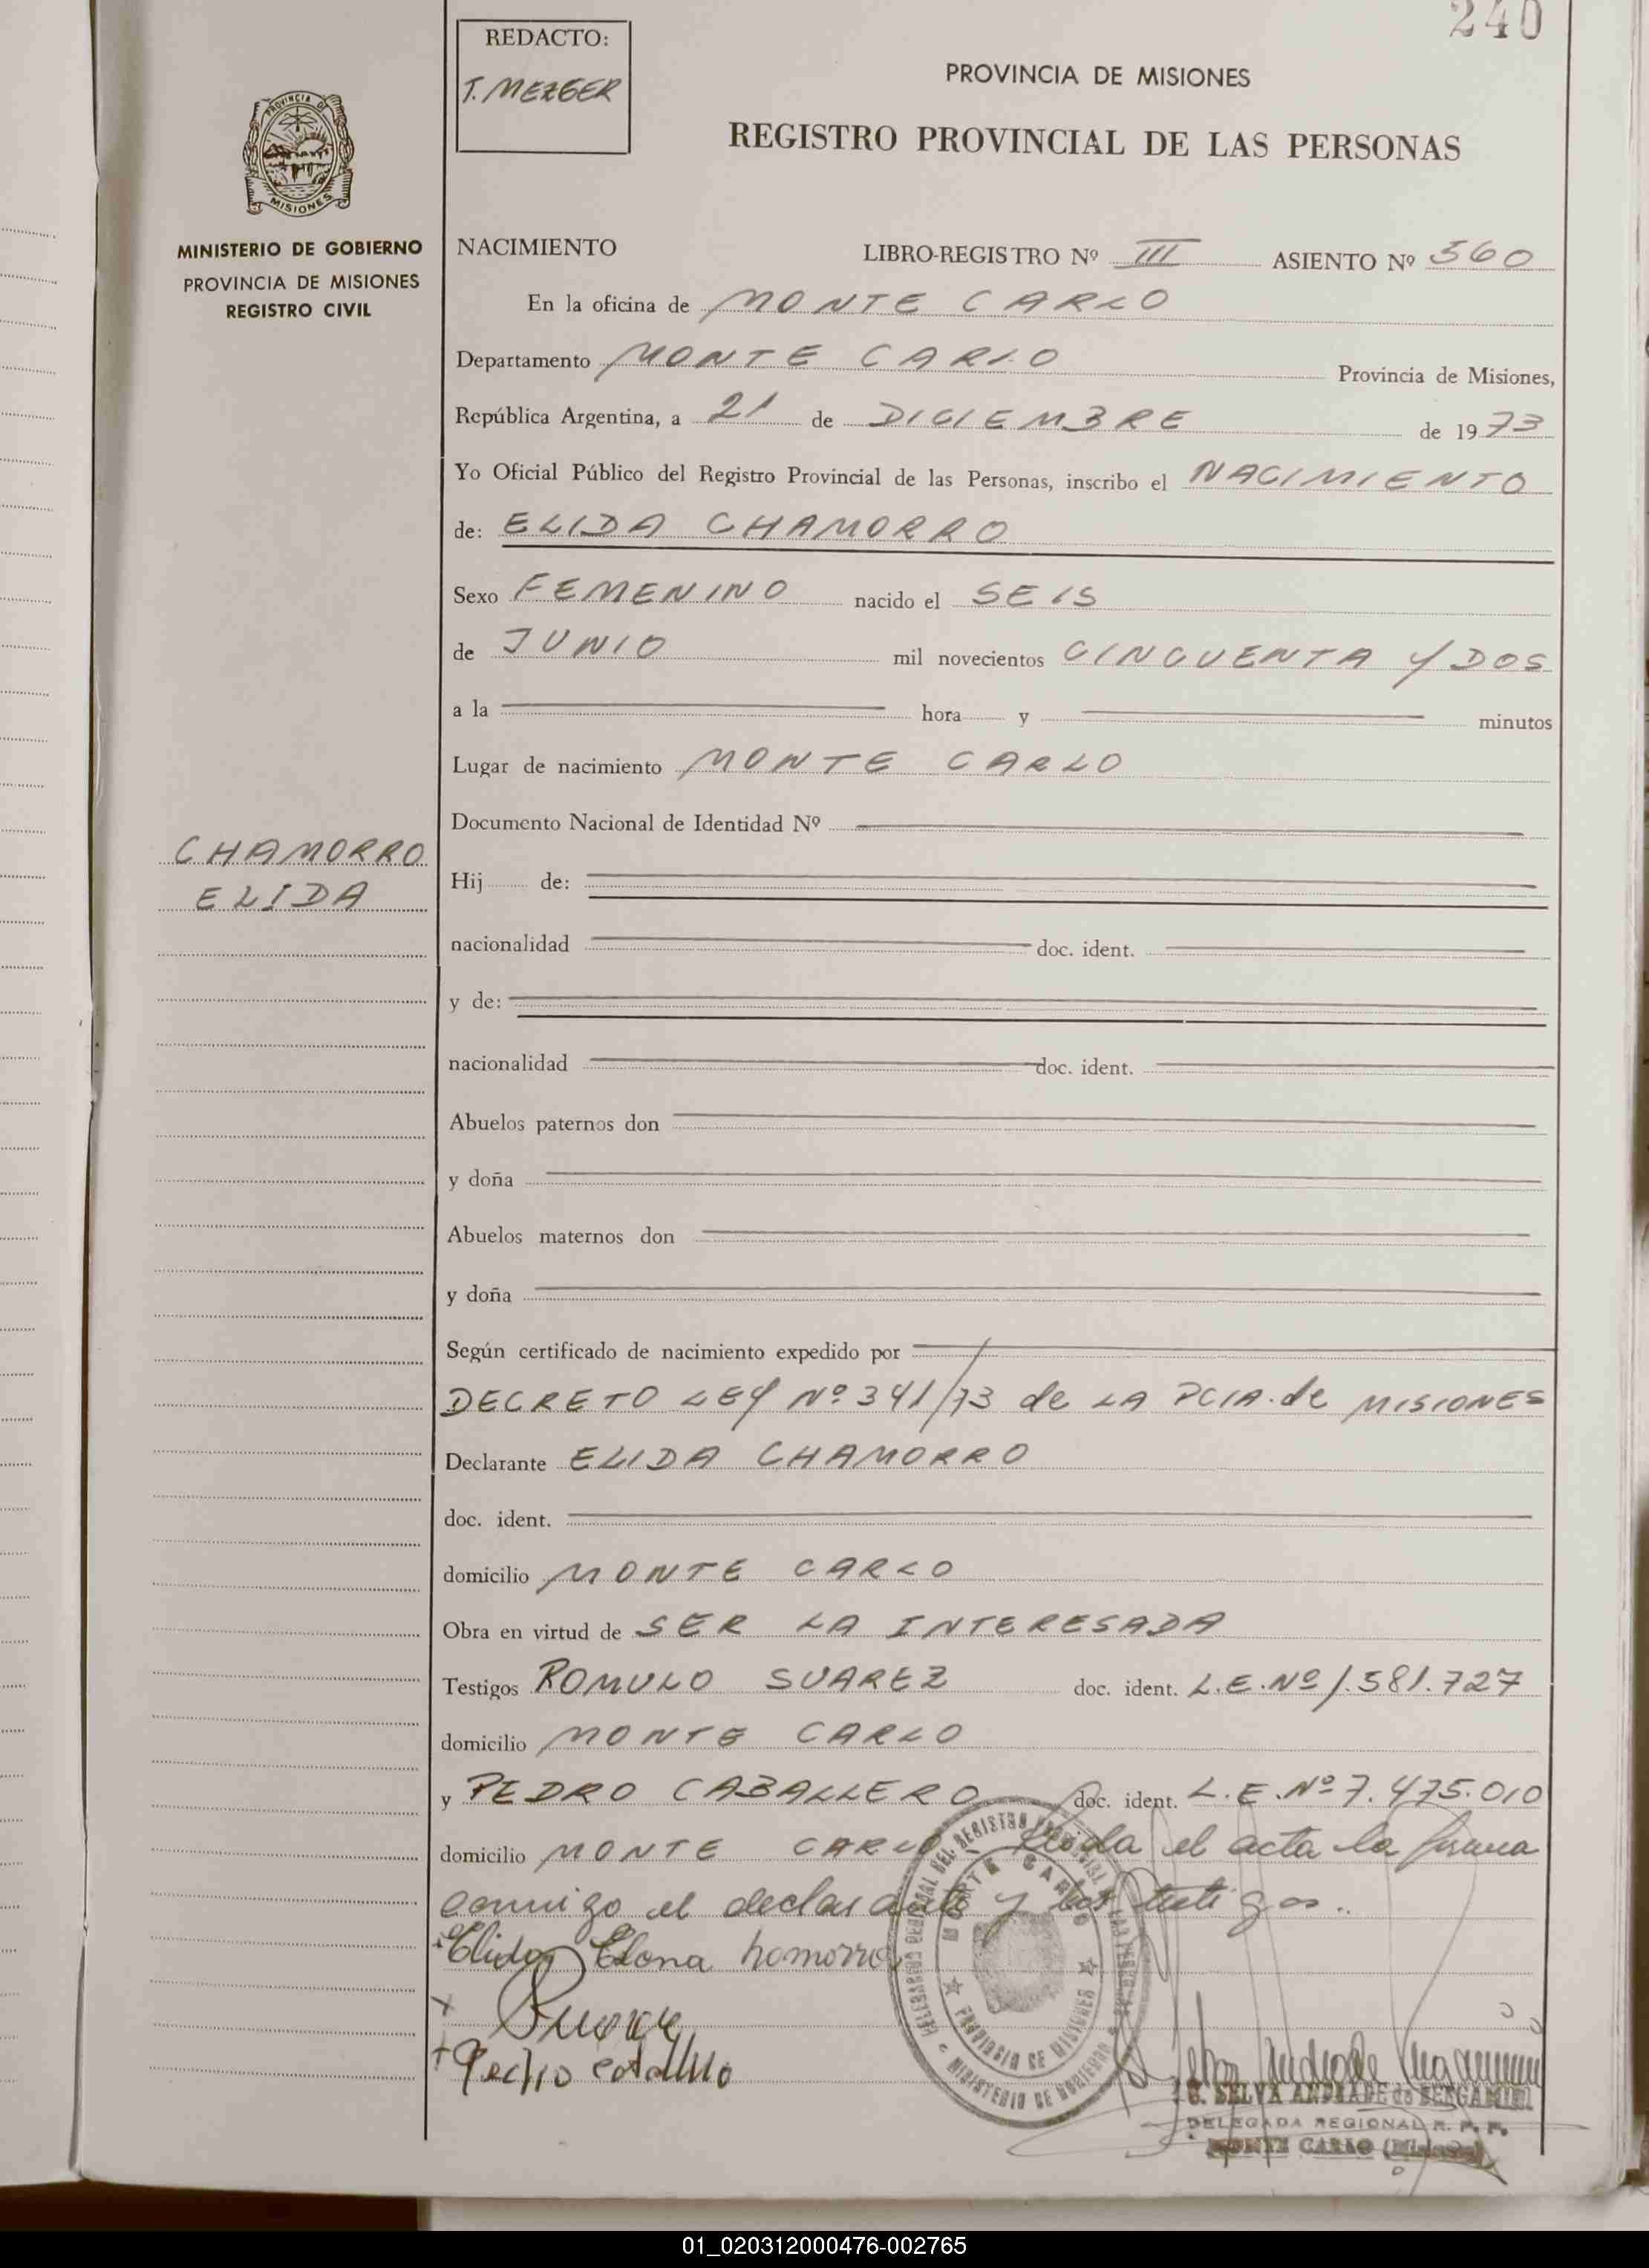 240
REDACTO:
T. MEZGER
PROVINCIA DE MISIONES
REGISTRO PROVINCIAL DE LAS PERSONAS
PROVINCIA DE
MISIONES
MINISTERIO DE GOBIERNO
PROVINCIA DE MISIONES
REGISTRO CIVIL
NACIMIENTO LIBRO-REGISTRO Nº III ASIENTO Nº 560
En la oficina de MONTE CARLO
Departamento MONTE CARLO Provincia de Misiones,
República Argentina, a 21 de DICIEMBRE de 1973
Yo Oficial Público del Registro Provincial de las Personas, inscribo el NACIMIENTO
de: ELIDA CHAMORRO
Sexo FEMENINO nacido el SEIS
de JUNIO mil novecientos CINCUENTA Y DOS
a la hora y minutos
Lugar de nacimiento MONTE CARLO
Documento Nacional de Identidad Nº
CHAMORRO
ELIDA
Hij de:
nacionalidad doc. ident.
y de:
nacionalidad doc. ident.
Abuelos paternos don
y doña
Abuelos maternos don
y doña
Según certificado de nacimiento expedido por
DECRETO LEY Nº 341/73 de LA PCIA. de MISIONES
Declarante ELIDA CHAMORRO
doc. ident.
domicilio MONTE CARLO
Obra en virtud de SER LA INTERESADA
Testigos ROMULO SUAREZ doc. ident. L.E. Nº 1.581.727
domicilio MONTE CARLO
y PEDRO CABALLERO doc. ident. L.E. Nº 7.475.010
domicilio MONTE CARLO Leida el acta la firma
conmigo el declarante y los testigos..
Elida Elena homorro
MONTE CARLO
PROVINCIA DE MISIONES
MINISTERIO DE GOBIERNO
SELVA ANDRADE de BERGAMINI
DELEGADA REGIONAL R. P. P.
MONTE CARLO (Misiones)
01_020312000476-002765